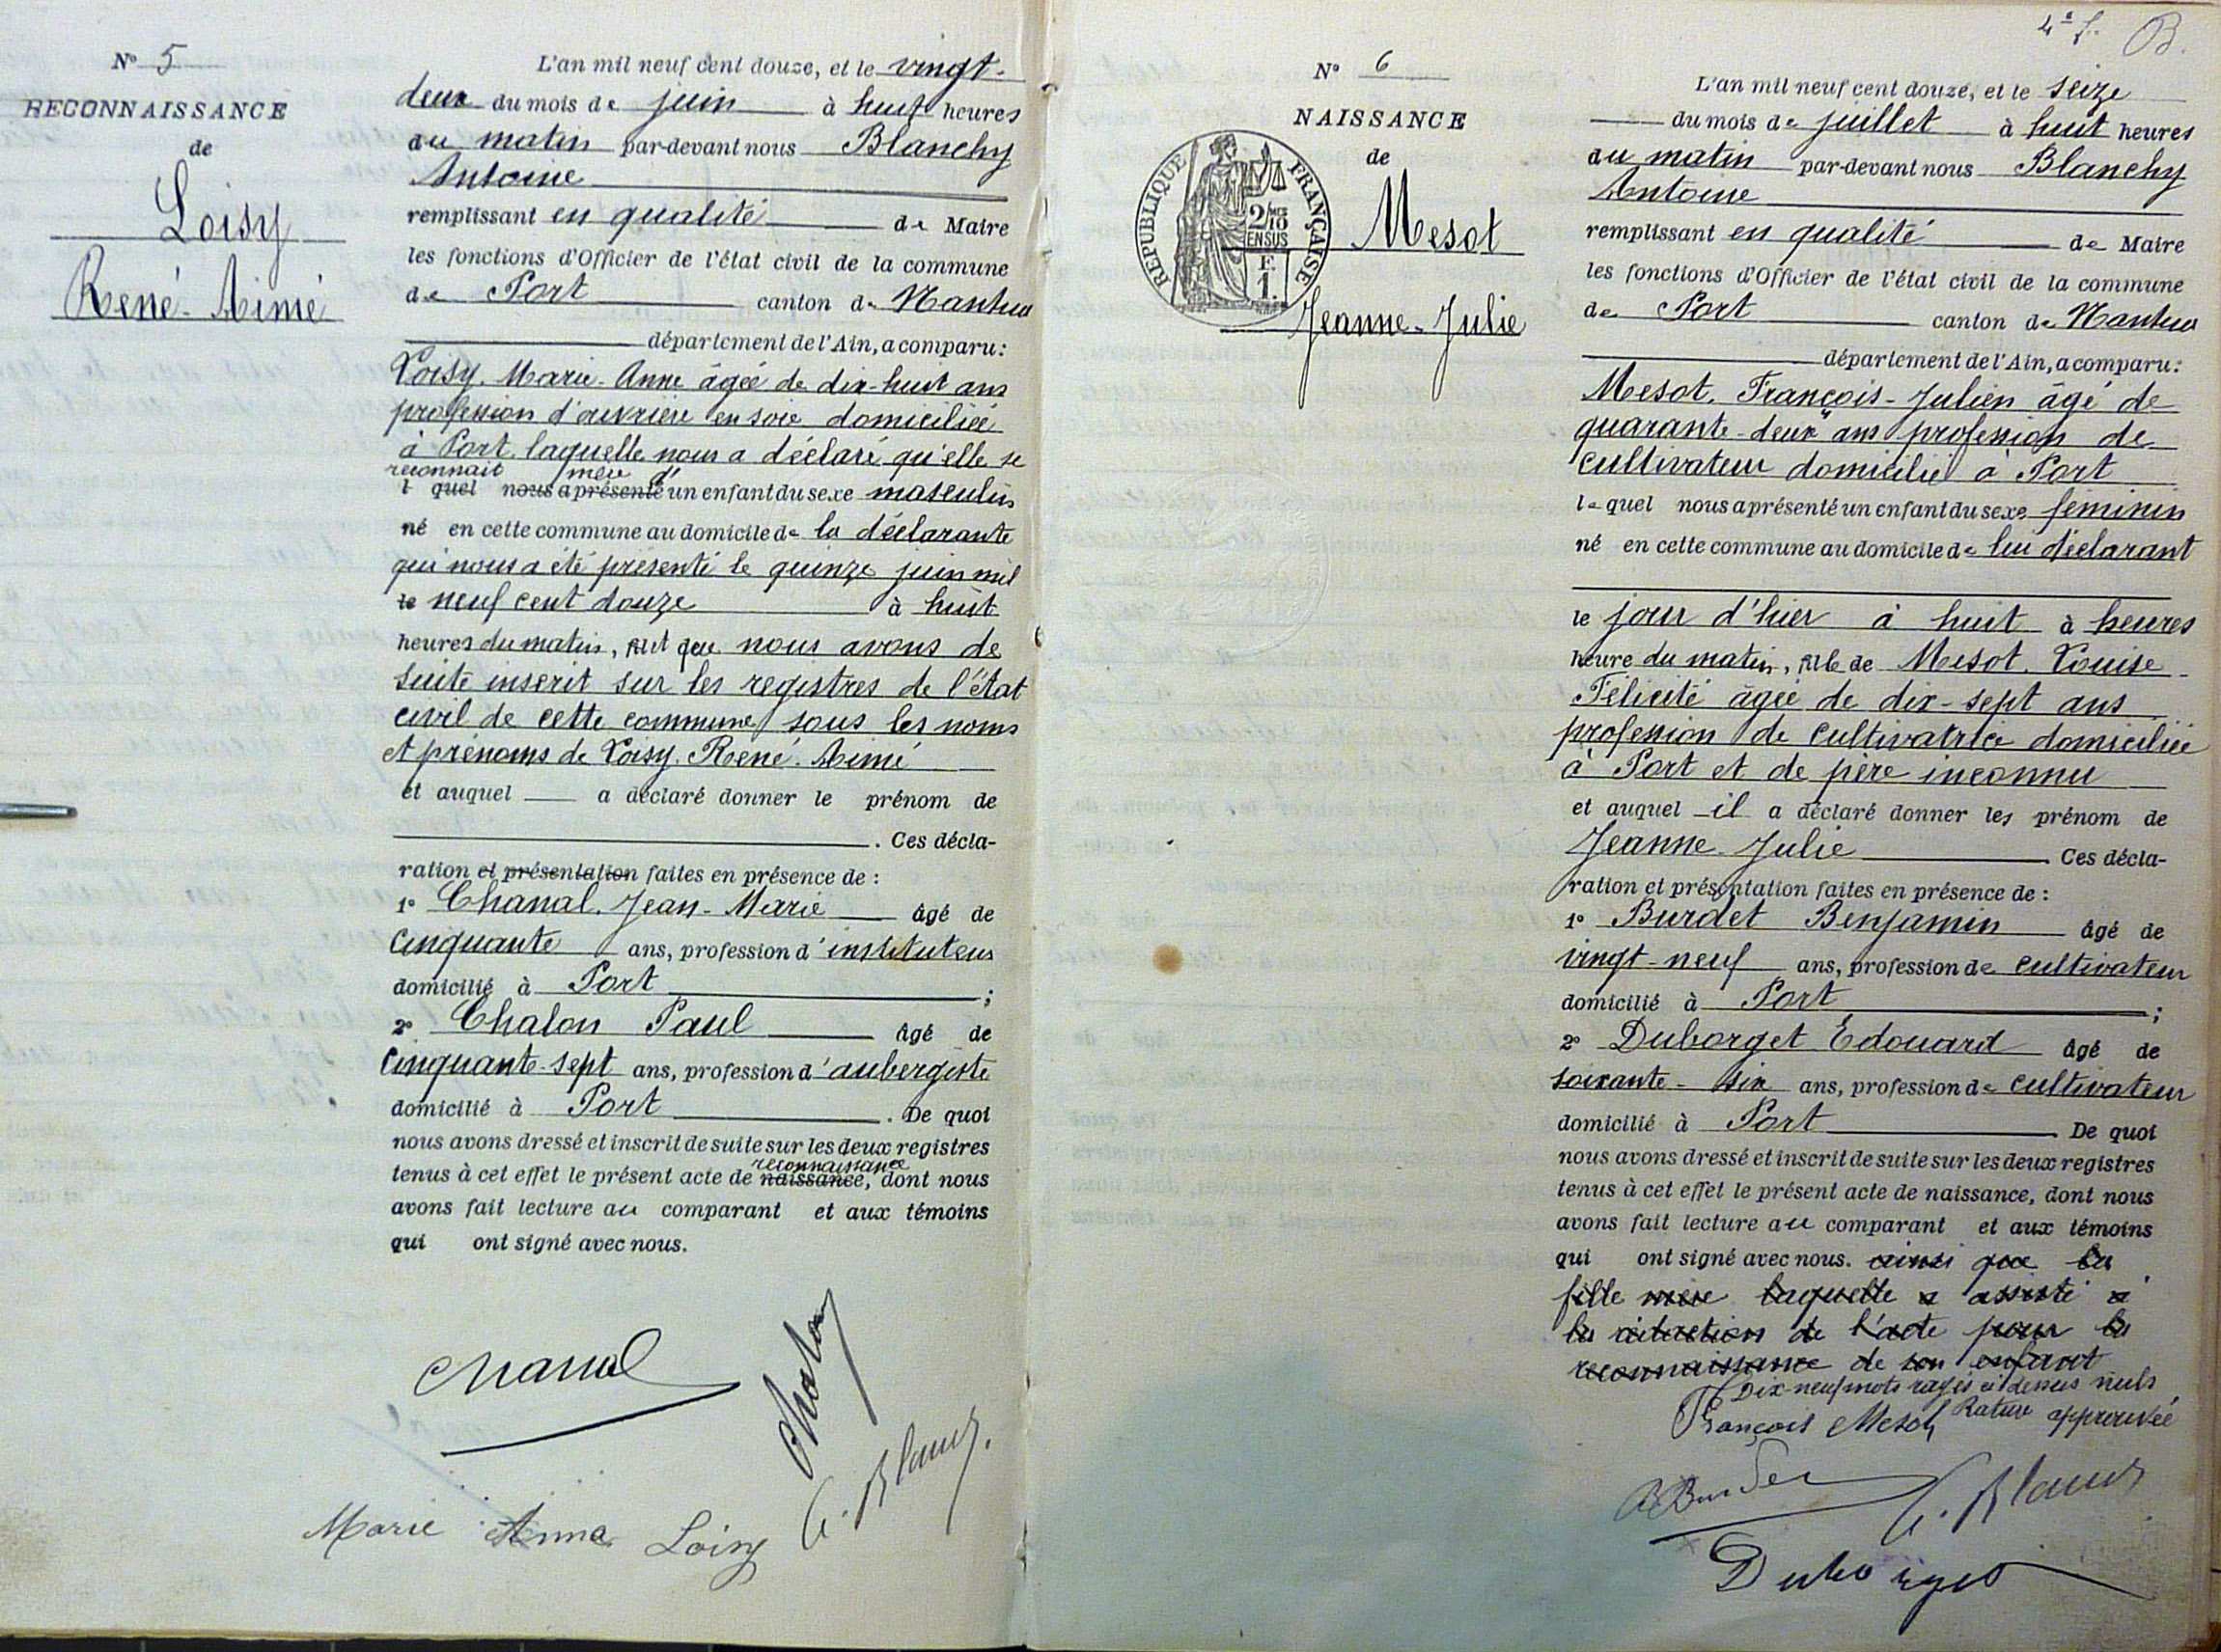 N° 5
RECONNAISSANCE
de
Loisy
René-Aimé
L'an mil neuf cent douze, et le vingt-
deux du mois de juin à huit heures
du matin par-devant nous Blanchy
Antoine
remplissant en qualité de Maire
les fonctions d'Officier de l'état civil de la commune
de Port canton de Nantua
département de l'Ain, a comparu:
Loisy. Marie-Anne âgée de dix-huit ans
profession d'ouvrière en soie domiciliée
à Port laquelle nous a déclaré qu'elle se
reconnait mère d'
l quel nous a présenté un enfant du sexe masculin
né en cette commune au domicile de la déclarante
qui nous a été présenté le quinze juin mil
le neuf cent douze à huit
heures du matin, que nous avons de
suite inscrit sur les registres de l'état
civil de cette commune sous les noms
et prénoms de Loisy. René. Aimé
et auquel a déclaré donner le prénom de
. Ces décla-
ration et présentation faites en présence de :
1° Chanal. Jean-Marie âgé de
cinquante ans, profession d'instituteur
domicilié à Port ;
2° Chalon Paul âgé de
cinquante-sept ans, profession d'aubergiste
domicilié à Port . De quoi
nous avons dressé et inscrit de suite sur les deux registres
reconnaissance
tenus à cet effet le présent acte de naissance, dont nous
avons fait lecture au comparant et aux témoins
qui ont signé avec nous.
Chanal
Chalon
Marie Anna Loisy
4e f. B.
N° 6
NAISSANCE
de
RÉPUBLIQUE FRANÇAISE
2/10
EN SUS
F.
1.
Mesot
Jeanne-Julie
L'an mil neuf cent douze, et le seize
du mois de juillet à huit heures
du matin par-devant nous Blanchy
Antoine
remplissant en qualité de Maire
les fonctions d'Officier de l'état civil de la commune
de Port canton de Nantua
département de l'Ain, a comparu:
Mesot. François-Julien âgé de
quarante-deux ans profession de
cultivateur domicilié à Port
lequel nous a présenté un enfant du sexe féminin
né en cette commune au domicile de lui déclarant
le jour d'hier à huit à heures
heure du matin, fille de Mesot. Louise
Félicité âgée de dix-sept ans
profession de cultivatrice domiciliée
à Port et de père inconnu
et auquel il a déclaré donner les prénom de
Jeanne-Julie Ces décla-
ration et présentation faites en présence de :
1° Burdet Benjamin âgé de
vingt-neuf ans, profession de cultivateur
domicilié à Port ;
2° Duborget Edouard âgé de
soixante-six ans, profession de cultivateur
domicilié à Port De quoi
nous avons dressé et inscrit de suite sur les deux registres
tenus à cet effet le présent acte de naissance, dont nous
avons fait lecture au comparant et aux témoins
qui ont signé avec nous. ainsi que la
fille mère laquelle a assisté à
la rédaction de l'acte pour la
reconnaissance de son enfant
Dix-neuf mots rayés ci dessus nuls
Rature approuvée
François Mesot
Duborget